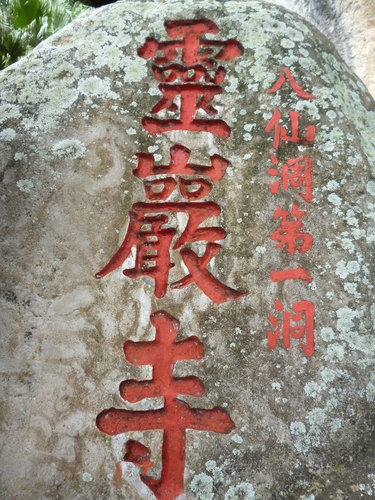 八仙洞第一洞
靈巖寺